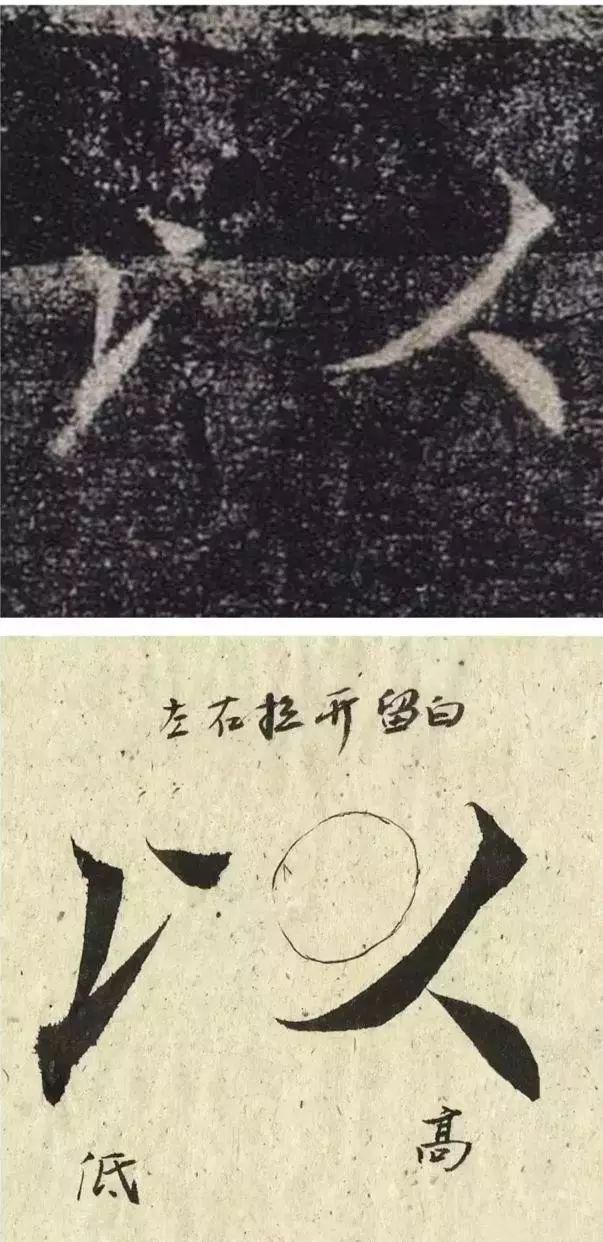 以
左右拉开留白
以
低
高